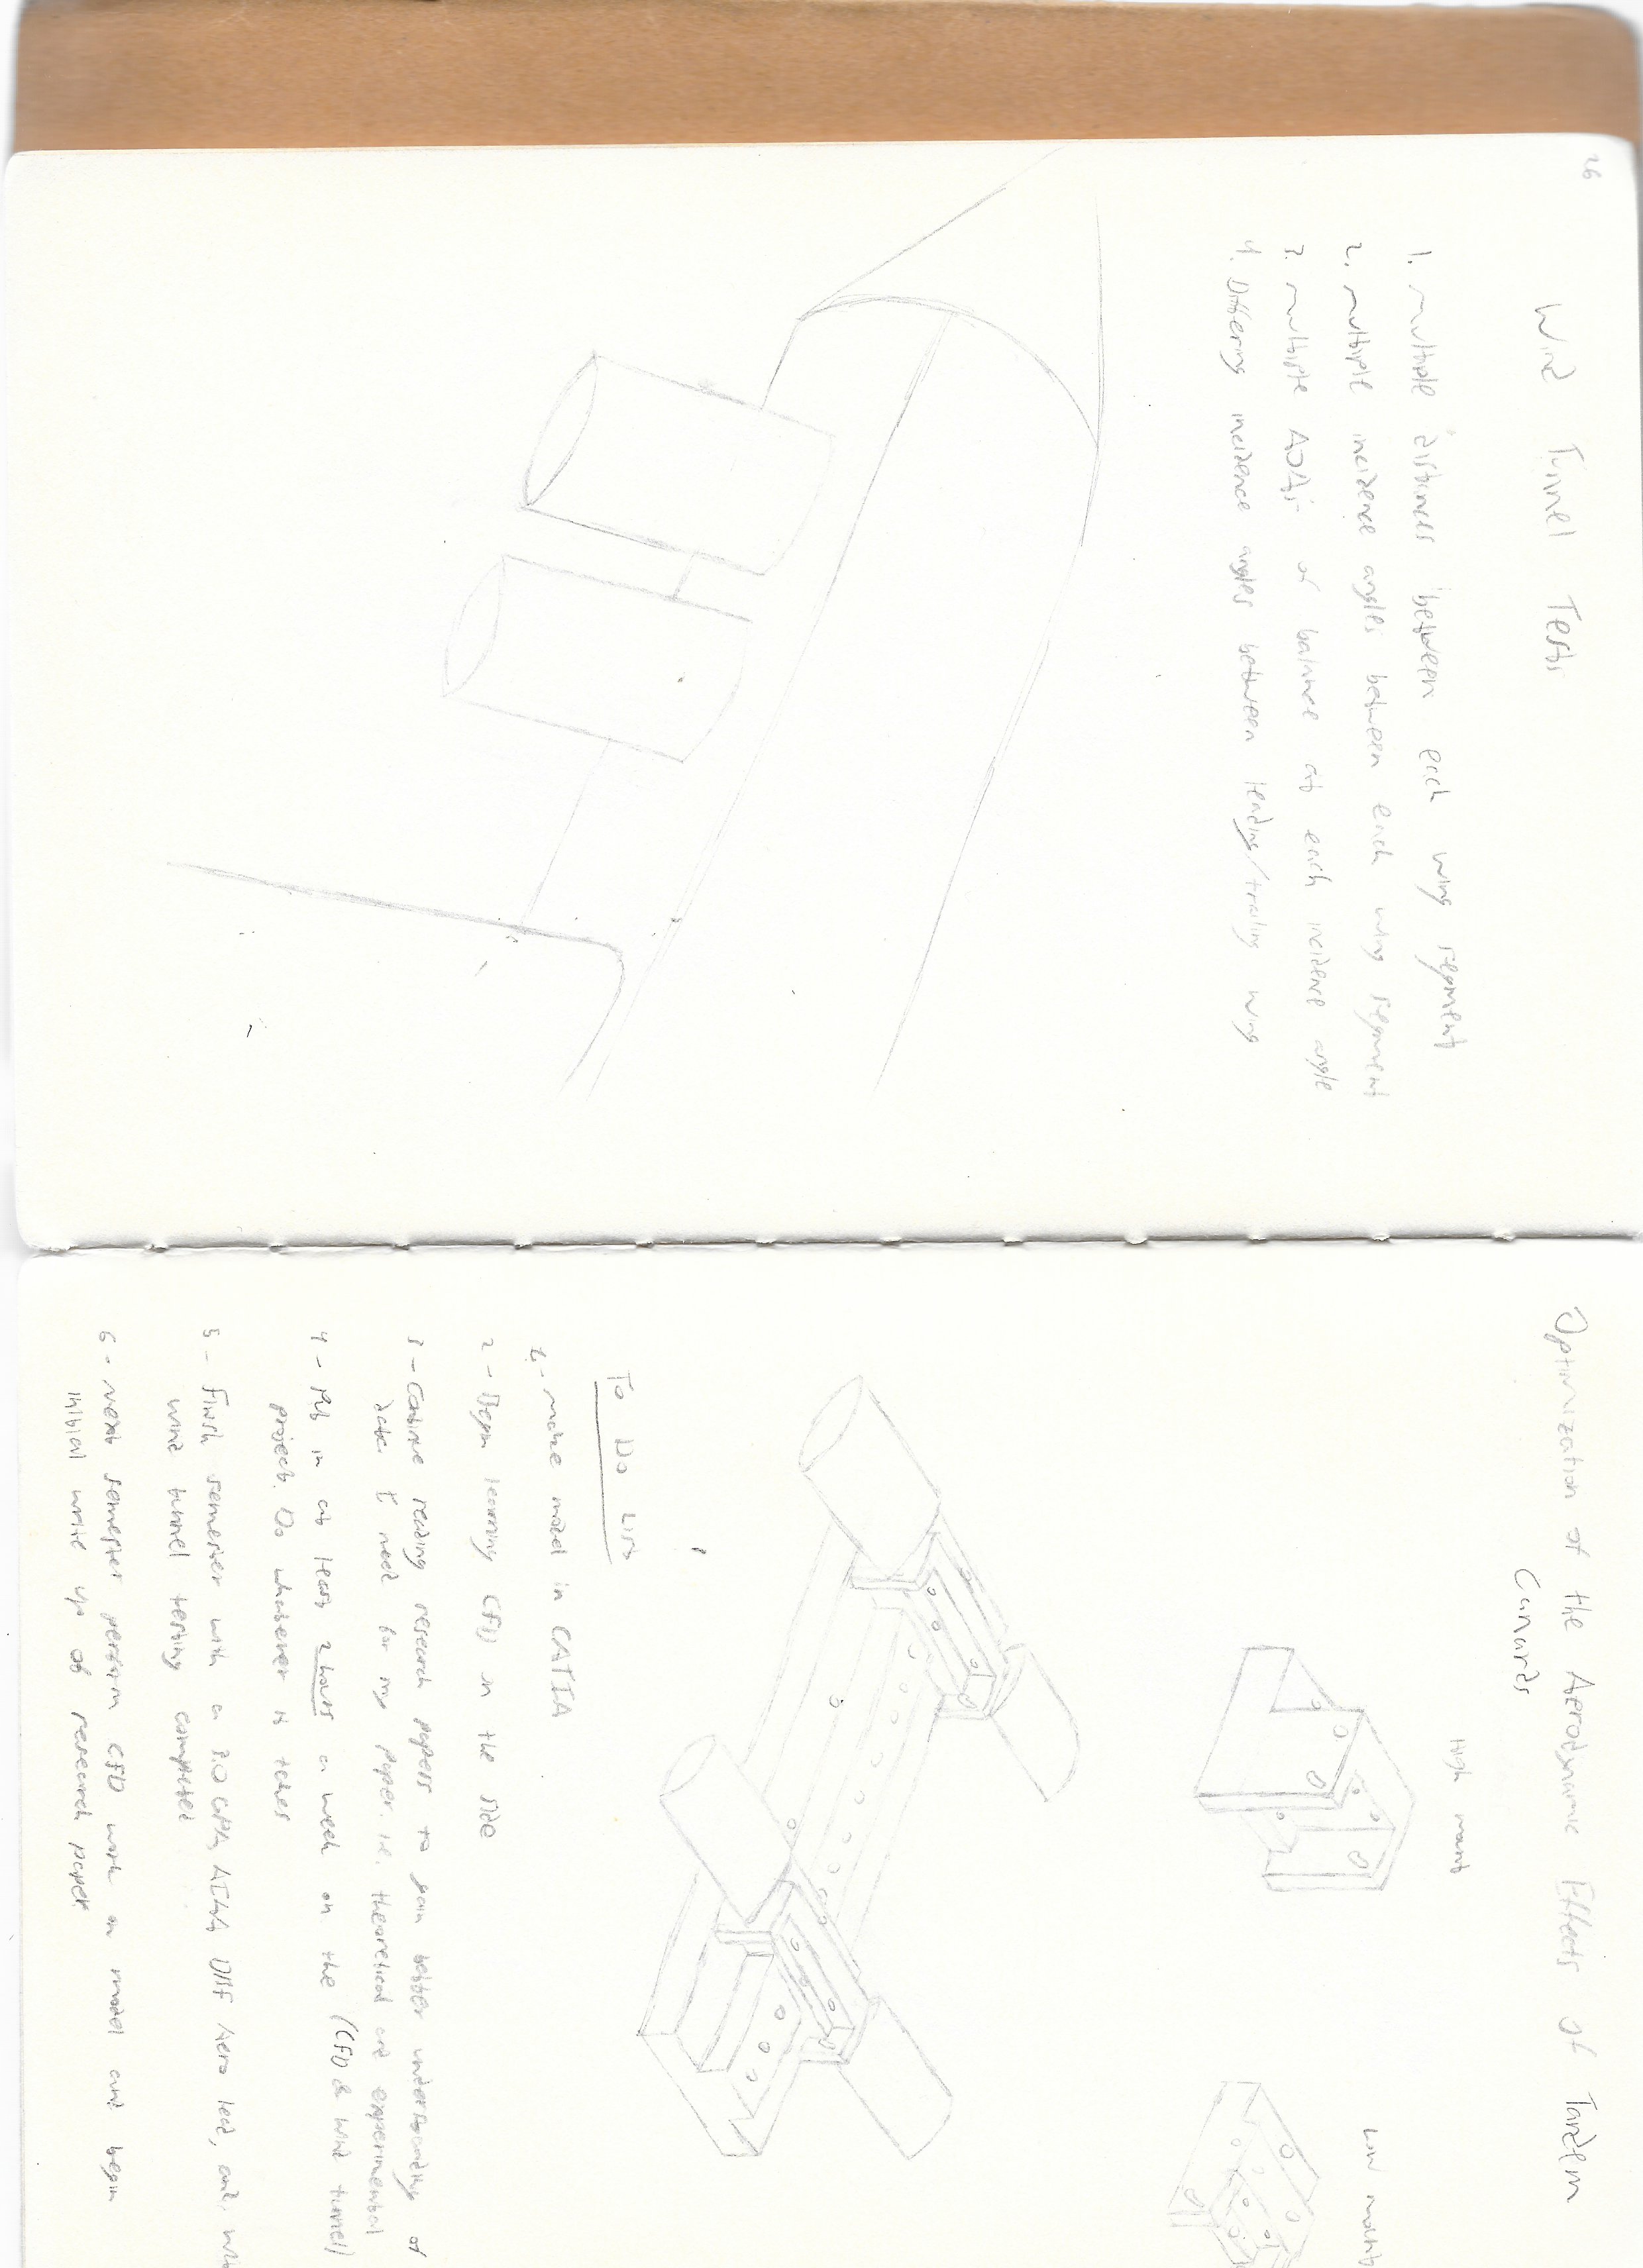 26
Wind Tunnel Tests
1. Multiple distances between each wing segment
2. Multiple incidence angles between each wing segment
3. Multiple AOA's of balance at each incidence angle
4. Differing incidence angles between leading/trailing wing
Optimization of the Aerodynamic Effects of Tandem
Canards
High mount
Low mount
To Do List
1- Make model in CATIA
2- Begin learning CFD on the side
3- Continue reading research papers to gain better understanding of
data I need for my paper. i.e. theoretical and experimental
(CFD & wind tunnel)
4- Put in at least 2 hours a week on the
project. Do whatever it takes
5- Finish semester with a 3.0 GPA, AIAA DBF Aero lead, and
wind tunnel testing completed
6- Next semester perform CFD work on model and begin
initial write up of research paper.